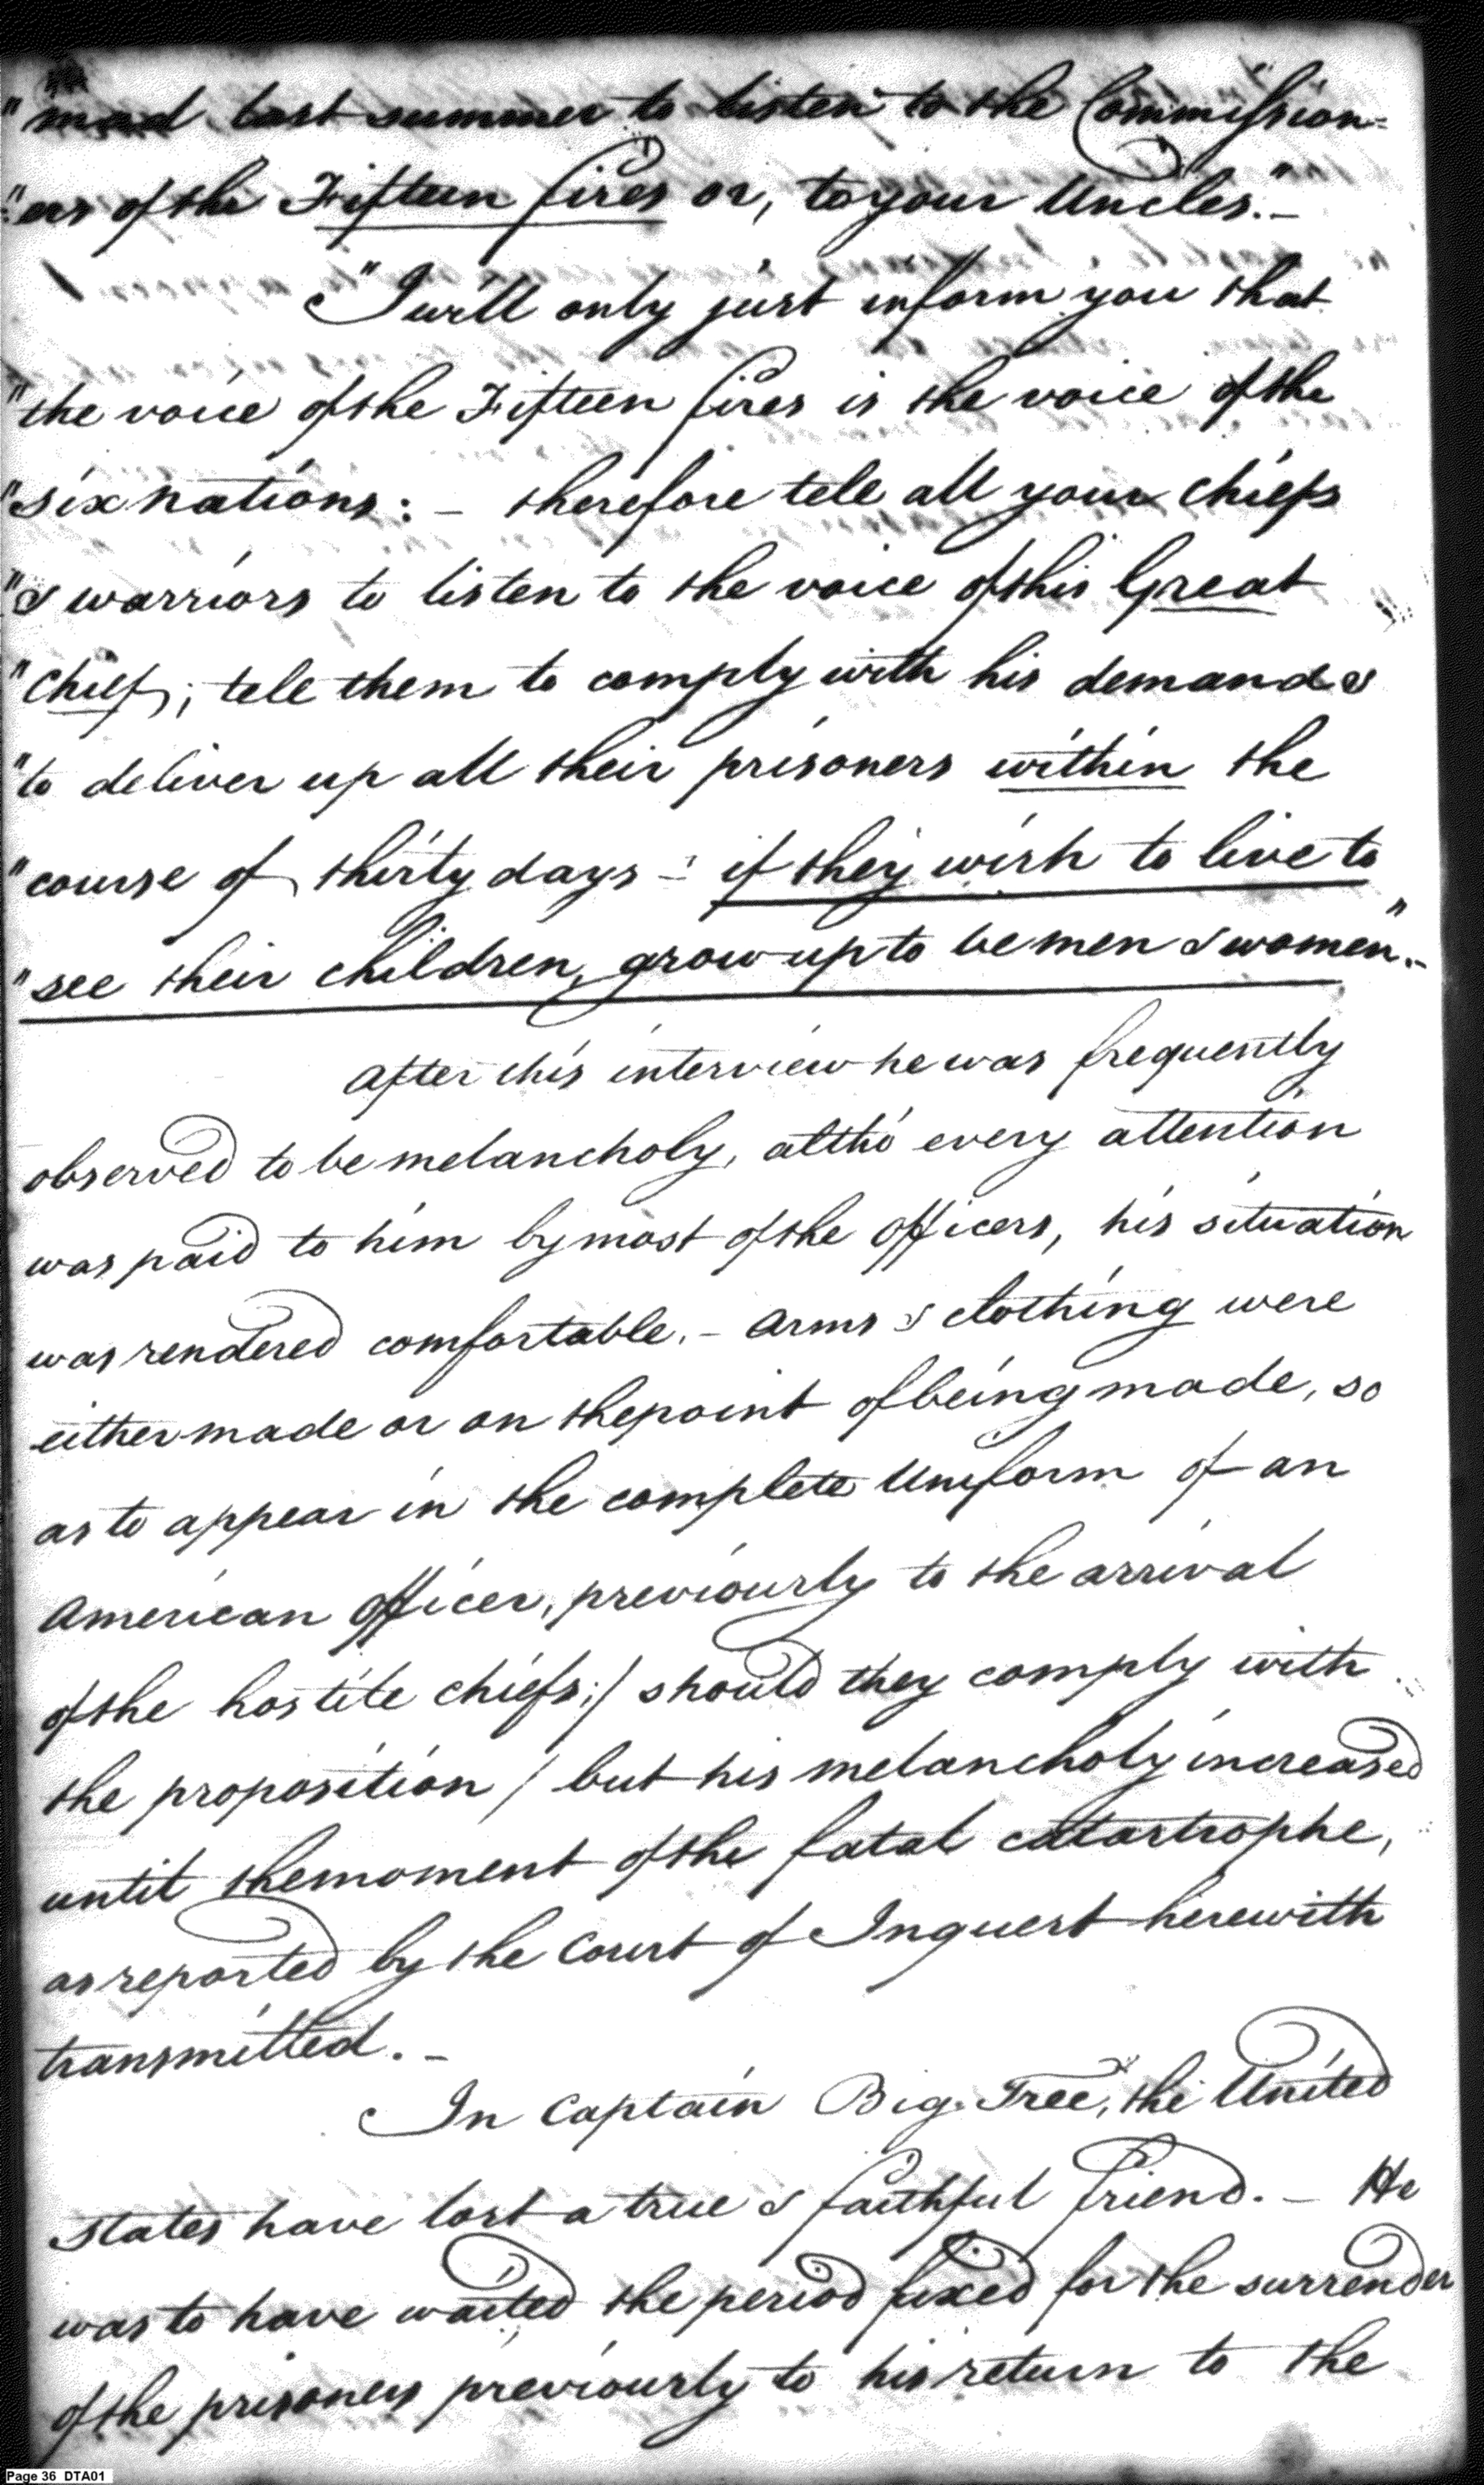 "mad last summer to listen to the Commission=
"=ers of the Fifteen fires or, to your Uncles."—
"I will only just inform you that
"the voice of the Fifteen fires is the voice of the
"six nations: — therefore tell all your chiefs
"& warriors to listen to the voice of this Great
"Chief; tell them to comply with his demands
"to deliver up all their prisoners within the
"course of thirty days — if they wish to live to
"see their children, grow up to be men & women".—
After this interview he was frequently
observed to be melancholy, altho' every attention
was paid to him by most of the officers, his situation
was rendered comfortable. — Arms & clothing were
either made or on the point of being made, so
as to appear in the complete Uniform of an
American officer, previously to the arrival
of the hostile chiefs; / should they comply with
the proposition / but his melancholy increased
until the moment of the fatal catastrophe,
as reported by the Court of Inquest herewith
transmitted. —
In Captain Big-Tree, the United
States have lost a true & faithful friend. — He
was to have waited the period fixed for the surrender
of the prisoners previously to his return to the
Page 36 DTA01